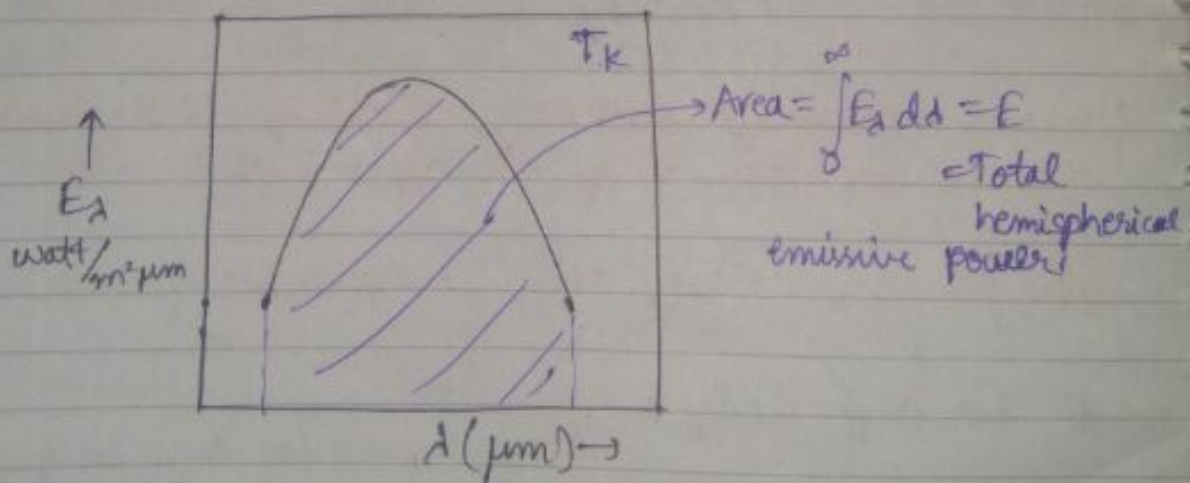 T K
∞
Area = ∫ E_λ dλ = E
0
= Total
hemispherical
emissive power
↑
E_λ
watt/m² μm
λ (μm) →